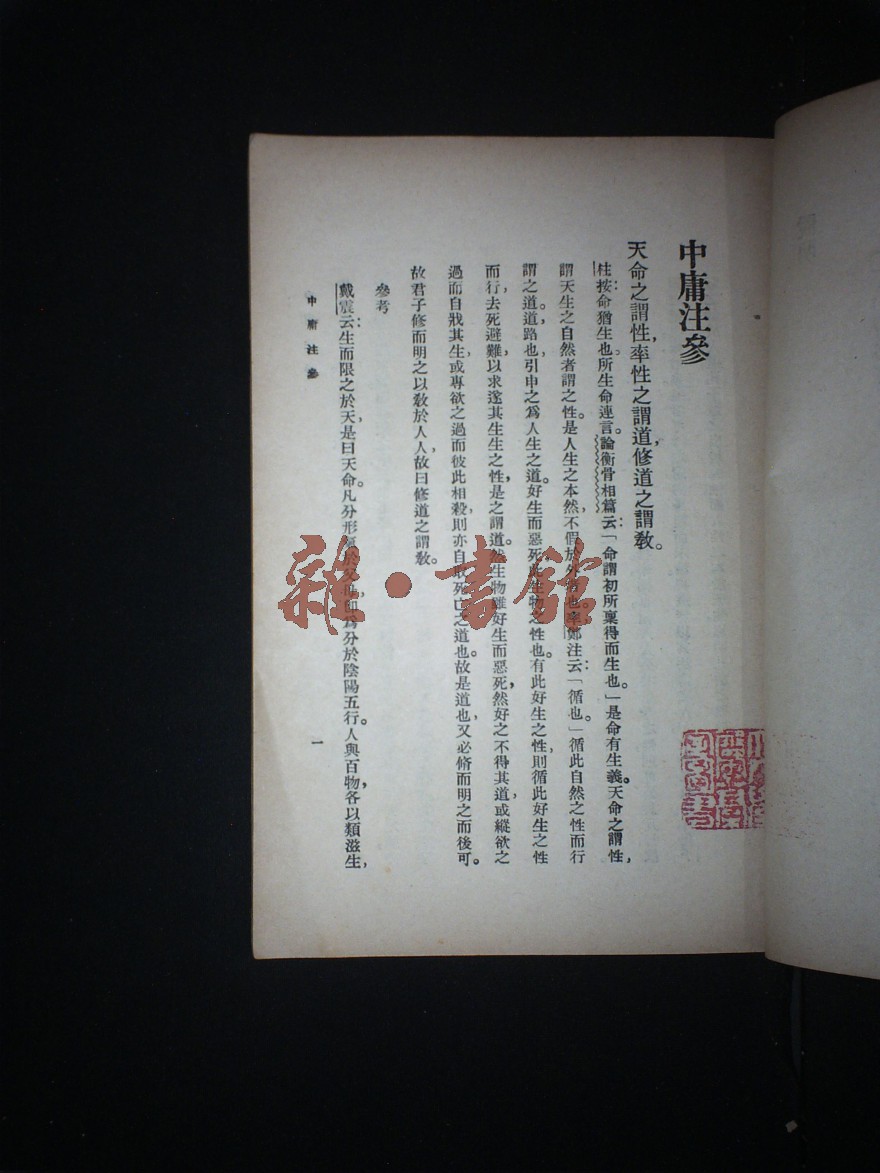 中庸注參
天命之謂性，率性之謂道，修道之謂教。
柱按：命猶生也。所生命連言。論衡骨相篇云：「命謂初所稟得而生也。」是命有生義。天命之謂性，
謂天生之自然者謂之性。是人生之本然，不假於外者也。率鄭注云：「循也。」循此自然之性而行
謂之道。道，路也，引申之爲人生之道。好生而惡死，此生物之性也。有此好生之性，則循此好生之性
而行，去死避難，以求遂其生生之性，是之謂道。然生物雖好生而惡死，然好之不得其道，或縱欲之
過而自戕其生，或專欲之過而彼此相殺，則亦自取死亡之道也。故是道也，又必脩而明之而後可。
故君子修而明之以敎於人人，故曰修道之謂敎。
參考
戴震云：生而限之於天，是曰天命。凡分形氣於父母，卽爲分於陰陽五行。人與百物，各以類滋生，
中庸注參
一
雜·書館